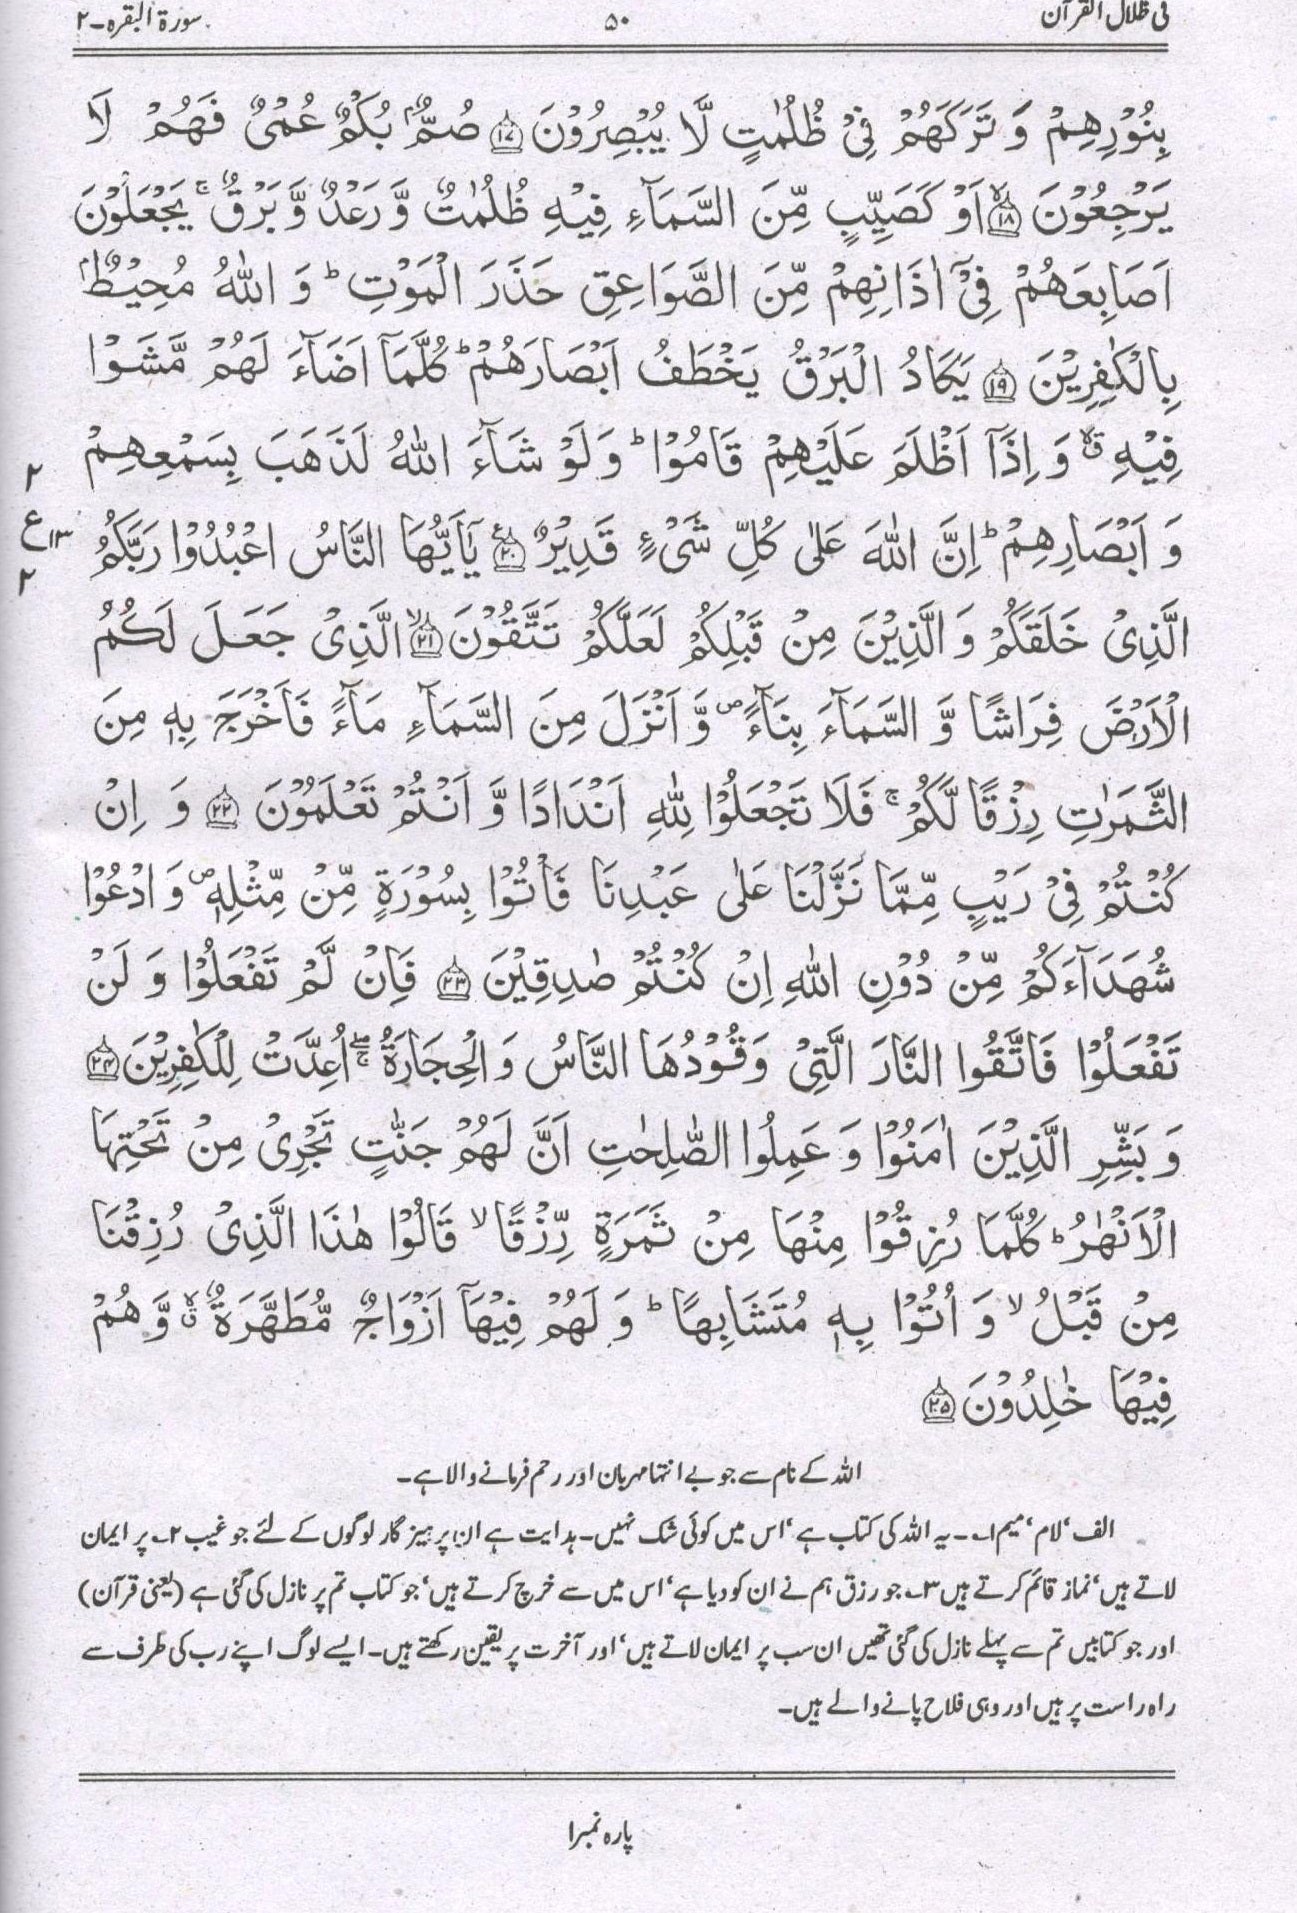 فی ظلال القرآن ۵۰ سورۃ البقرہ-۲
بِنُوْرِهِمْ وَ تَرَكَهُمْ فِیْ ظُلُمٰتٍ لَّا یُبْصِرُوْنَ ﴿۱۷﴾ صُمٌّۢ بُكْمٌ عُمْیٌ فَهُمْ لَا
یَرْجِعُوْنَ ﴿۱۸﴾ۙ اَوْ كَصَیِّبٍ مِّنَ السَّمَآءِ فِیْهِ ظُلُمٰتٌ وَّ رَعْدٌ وَّ بَرْقٌ ۚ یَجْعَلُوْنَ
اَصَابِعَهُمْ فِیْۤ اٰذَانِهِمْ مِّنَ الصَّوَاعِقِ حَذَرَ الْمَوْتِ ؕ وَ اللّٰهُ مُحِیْطٌۢ
بِالْكٰفِرِیْنَ ﴿۱۹﴾ یَكَادُ الْبَرْقُ یَخْطَفُ اَبْصَارَهُمْ ؕ كُلَّمَاۤ اَضَآءَ لَهُمْ مَّشَوْا
فِیْهِ ۙۗ وَ اِذَاۤ اَظْلَمَ عَلَیْهِمْ قَامُوْا ؕ وَ لَوْ شَآءَ اللّٰهُ لَذَهَبَ بِسَمْعِهِمْ
۲
وَ اَبْصَارِهِمْ ؕ اِنَّ اللّٰهَ عَلٰی كُلِّ شَیْءٍ قَدِیْرٌ ﴿۲۰﴾ۧ یٰۤاَیُّهَا النَّاسُ اعْبُدُوْا رَبَّكُمُ
ع ۱۳
۲
الَّذِیْ خَلَقَكُمْ وَ الَّذِیْنَ مِنْ قَبْلِكُمْ لَعَلَّكُمْ تَتَّقُوْنَ ﴿۲۱﴾ۙ الَّذِیْ جَعَلَ لَكُمُ
الْاَرْضَ فِرَاشًا وَّ السَّمَآءَ بِنَآءً ۪ وَّ اَنْزَلَ مِنَ السَّمَآءِ مَآءً فَاَخْرَجَ بِهٖ مِنَ
الثَّمَرٰتِ رِزْقًا لَّكُمْ ۚ فَلَا تَجْعَلُوْا لِلّٰهِ اَنْدَادًا وَّ اَنْتُمْ تَعْلَمُوْنَ ﴿۲۲﴾ وَ اِنْ
كُنْتُمْ فِیْ رَیْبٍ مِّمَّا نَزَّلْنَا عَلٰی عَبْدِنَا فَاْتُوْا بِسُوْرَةٍ مِّنْ مِّثْلِهٖ ۪ وَ ادْعُوْا
شُهَدَآءَكُمْ مِّنْ دُوْنِ اللّٰهِ اِنْ كُنْتُمْ صٰدِقِیْنَ ﴿۲۳﴾ فَاِنْ لَّمْ تَفْعَلُوْا وَ لَنْ
تَفْعَلُوْا فَاتَّقُوا النَّارَ الَّتِیْ وَقُوْدُهَا النَّاسُ وَ الْحِجَارَةُ ۖۚ اُعِدَّتْ لِلْكٰفِرِیْنَ ﴿۲۴﴾
وَ بَشِّرِ الَّذِیْنَ اٰمَنُوْا وَ عَمِلُوا الصّٰلِحٰتِ اَنَّ لَهُمْ جَنّٰتٍ تَجْرِیْ مِنْ تَحْتِهَا
الْاَنْهٰرُ ؕ كُلَّمَا رُزِقُوْا مِنْهَا مِنْ ثَمَرَةٍ رِّزْقًا ۙ قَالُوْا هٰذَا الَّذِیْ رُزِقْنَا
مِنْ قَبْلُ ۙ وَ اُتُوْا بِهٖ مُتَشَابِهًا ؕ وَ لَهُمْ فِیْهَاۤ اَزْوَاجٌ مُّطَهَّرَةٌ ۙۗ وَّ هُمْ
فِیْهَا خٰلِدُوْنَ ﴿۲۵﴾
اللہ کے نام سے جو بے انتہا مہربان اور رحم فرمانے والا ہے۔
الف ‘لام ‘میم۱۔ یہ اللہ کی کتاب ہے ‘اس میں کوئی شک نہیں۔ ہدایت ہے ان پر ہیز گار لوگوں کے لئے جو غیب ۲۔ پر ایمان
لاتے ہیں ‘نماز قائم کرتے ہیں ۳۔ جو رزق ہم نے ان کو دیا ہے ‘اس میں سے خرچ کرتے ہیں ‘جو کتاب تم پر نازل کی گئی ہے (یعنی قرآن)
اور جو کتابیں تم سے پہلے نازل کی گئی تھیں ان سب پر ایمان لاتے ہیں ‘اور آخرت پر یقین رکھتے ہیں۔ ایسے لوگ اپنے رب کی طرف سے
راہ راست پر ہیں اور وہی فلاح پانے والے ہیں۔
پارہ نمبر۱